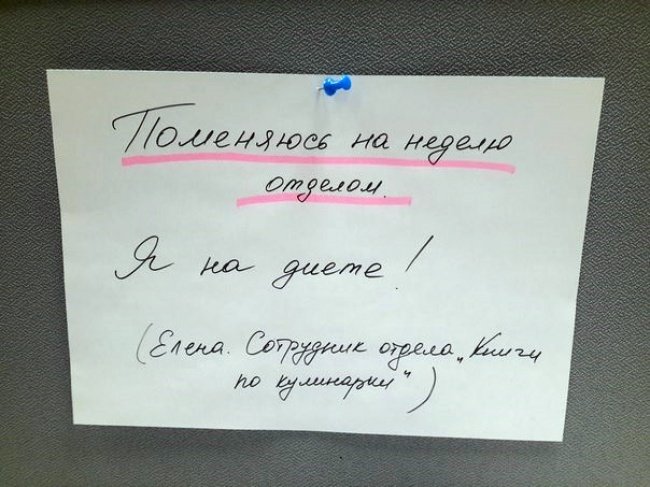 Поменяюсь на неделю
отделом.
Я на диете!
(Елена. Сотрудник отдела „Книги
по кулинарки")